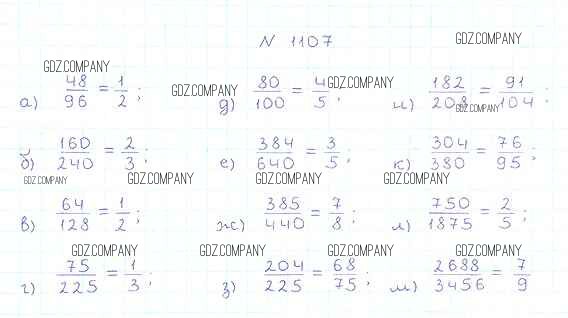 N 1107
GDZ.COMPANY
GDZ.COMPANY
GDZ.COMPANY
GDZ.COMPANY
а) 48/96 = 1/2; д) 80/100 = 4/5; и) 182/208 = 91/104;
GDZ.COMPANY
б) 160/240 = 2/3; е) 384/640 = 3/5; к) 304/380 = 76/95;
GDZ.COMPANY GDZ.COMPANY GDZ.COMPANY GDZ.COMPANY
в) 64/128 = 1/2; ж) 385/440 = 7/8; л) 750/1875 = 2/5;
GDZ.COMPANY GDZ.COMPANY GDZ.COMPANY GDZ.COMPANY
г) 75/225 = 1/3; з) 204/225 = 68/75; м) 2688/3456 = 7/9